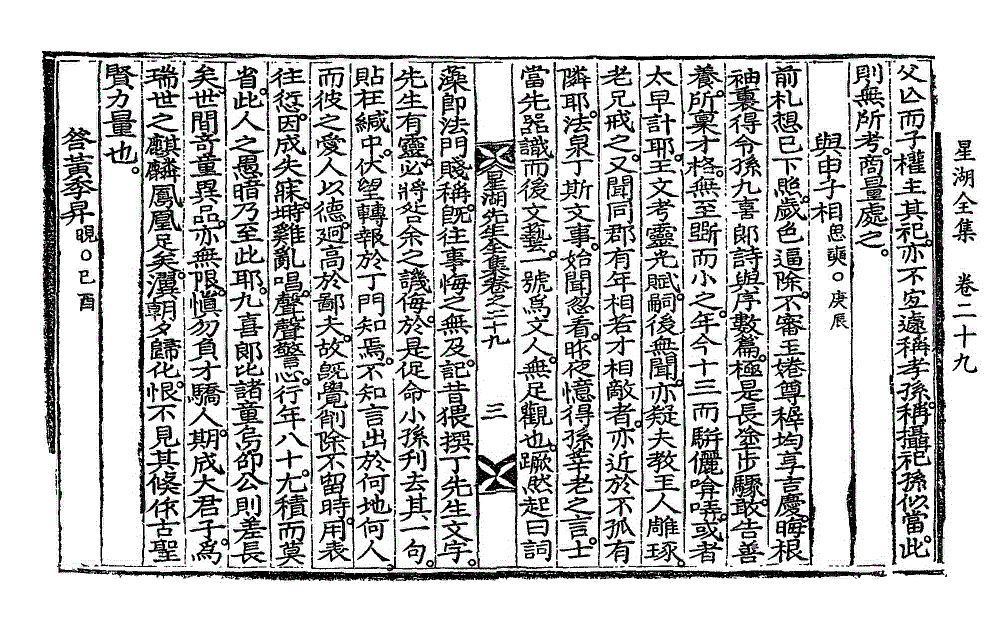 星湖全集　卷二十九
父亡而子權主其祀。亦不宜遽稱孝孫。稱攝祀孫似當。此
則無所考。商量處之。
與申子相思奭○庚辰
前札想已下照。歲色逼除。不審王婘尊稺均享吉慶。晦根
袖裹得令孫九喜郞詩與序數篇。極是長途步驟。敢告善
養。所稟才格。無至斲而小之。年今十三而騈儷喩嘑。或者
太早計耶。王文考靈光賦。嗣後無聞。亦疑夫敎王人雕琢。
老兄戒之。又聞同郡有年相若才相敵者。亦近於不孤有
隣耶。法泉丁斯文事。始聞忍看。昨夜憶得孫莘老之言。士
當先器識而後文藝。一號爲文人。無足觀也。蹶然起曰詞
星湖先生全集卷之二十九　三
藻卽法門賤稱。旣往事悔之無及。記昔猥撰丁先生文字。
先生有靈。必將咎余之譏侮。於是促命小孫刋去其一句。
貼在緘中。伏望轉報於丁門知焉。不知言出於何地何人。
而彼之愛人以德。逈高於鄙夫。故旣覺削除不留時。用表
往愆。因成失寐。塒雞亂唱。聲聲警心。行年八十。九積而莫
省。此人之愚暗乃至此耶。九喜郞比諸童烏卻公則差長
矣。世間奇童異品。亦無限。愼勿負才驕人。期成大君子。爲
瑞世之麒麟鳳凰足矣。瀷朝夕歸化。恨不見其倏作古聖
賢力量也。
答黃季昇晛○己酉